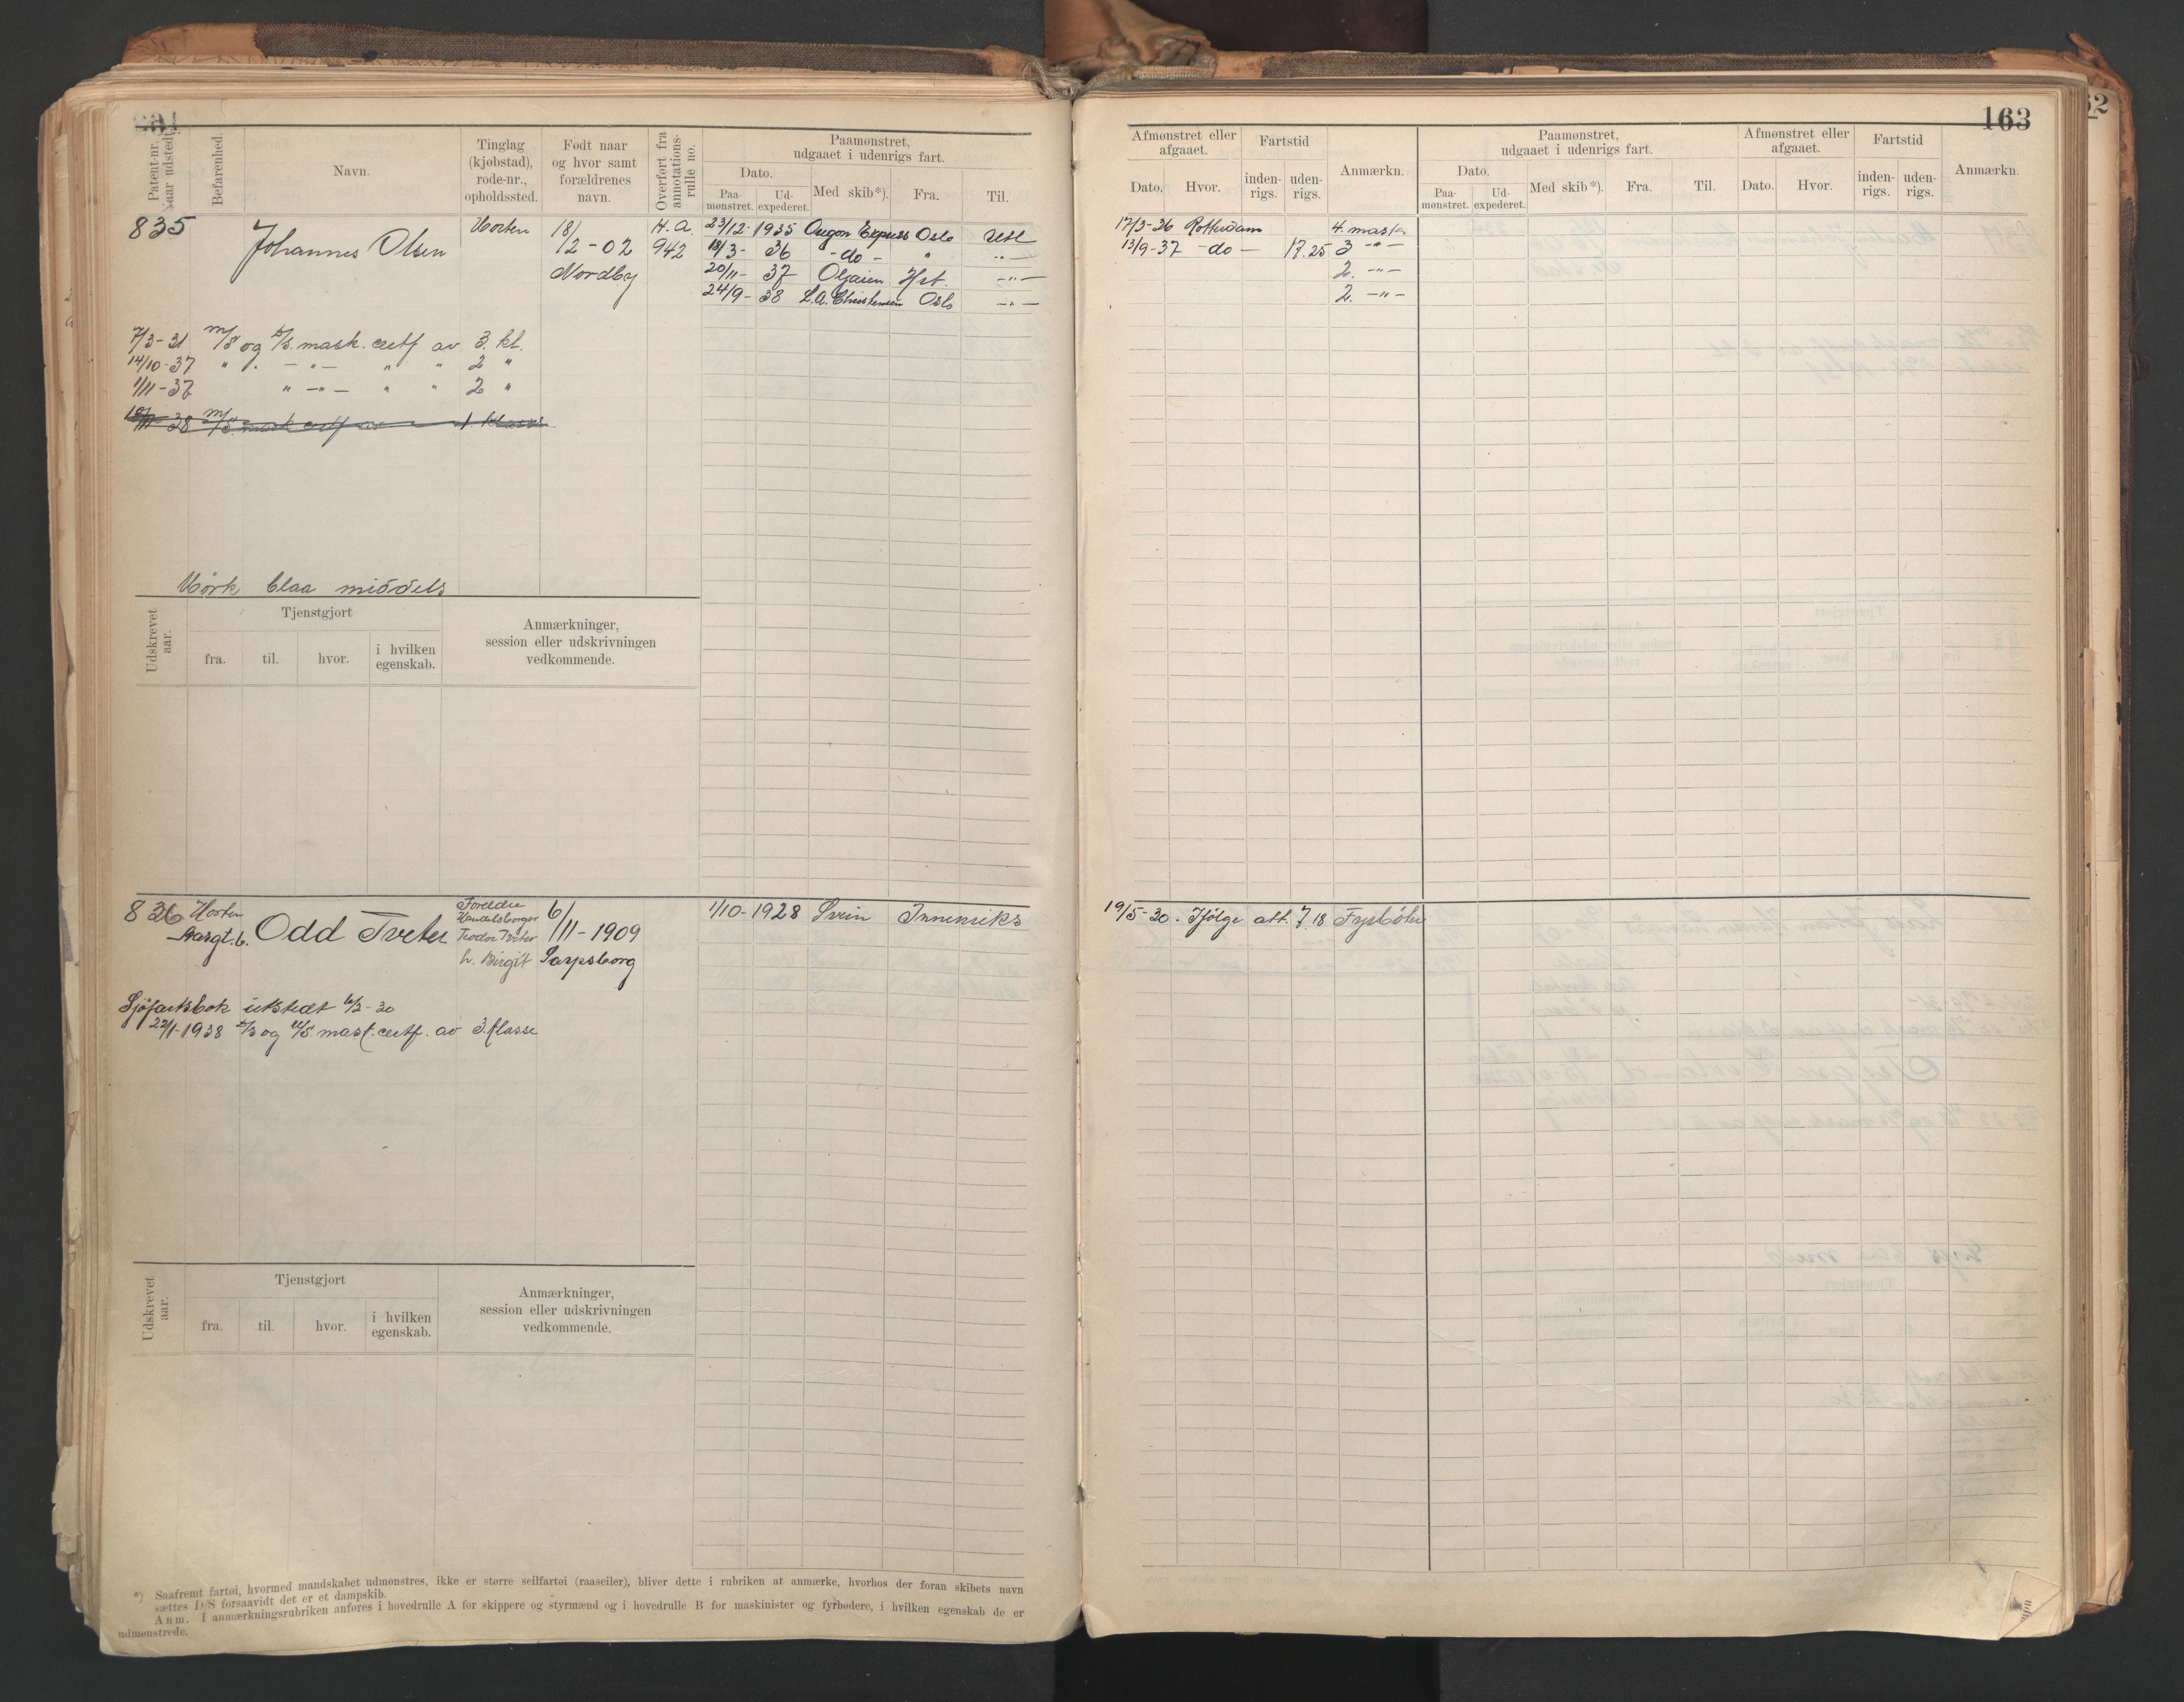 163
Patent-nr. Naar udstedt.
Befarenhed.
Navn.
Tinglag (kjøbstad), rode-nr., opholdssted.
Født naar og hvor samt forældrenes navn.
Overført fra annotations-rulle no.
Paamønstret, udgaaet i udenrigs fart.
Dato.
Paa-mønstret.
Ud-expederet.
Med skib*).
Fra.
Til.
Afmønstret eller afgaaet.
Dato.
Hvor.
Fartstid
inden-rigs.
uden-rigs.
Anmærkn.
Paamønstret, udgaaet i udenrigs fart.
Dato.
Paa-mønstret.
Ud-expederet.
Med skib*).
Fra.
Til.
Afmønstret eller afgaaet.
Dato.
Hvor.
Fartstid
inden-rigs.
uden-rigs.
Anmærkn.
835 Johannes Olsen Horten 18/12-02 Nordby H.a. 942
23/12-1935 Oregon Express Oslo Utl 17/3-36 Rotterdam 4. mask
18/3-36 -do- " -"- 13/9-37 -do- 17.25 3 -"-
20/11-37 Hst. -"- 2. -"-
24/9-38 L.A. Christensen Oslo -"- 2. -"-
7/3-31 m/s og d/s. mask. certf av 3. kl.
14/10-37 " " -"- " " 2 "
1/11-37 " -"- " " 2 "
38 m/s. mask. certf av 1 klasse
Mörk blaa middels
Udskrevet aar.
Tjenstgjort
fra.
til.
hvor.
i hvilken egenskab.
Anmærkninger, session eller udskrivningen vedkommende.
836 Horten Odd Tveter Foreldre Handelsborger Teodor Tveter h. Birgit 6/11-1909 Sarpsborg
1/10-1928 Svein Innenriks 19/5-30. Ifölge att. 7.18 Fyrböter
Sjøfartsbok utstedt 6/3-30
22/1-1938 d/s og m/s. mask. certf. av 3. klasse
Udskrevet aar.
Tjenstgjort
fra.
til.
hvor.
i hvilken egenskab.
Anmærkninger, session eller udskrivningen vedkommende.
*) Saafremt fartøi, hvormed mandskabet udmønstres, ikke er større seilfartøi (raaseiler), bliver dette i rubriken at anmærke, hvorhos der foran skibets navn
sættes D/S forsaavidt det er et dampskib.
Anm. I anmærkningsrubriken anføres i hovedrulle A for skippere og styrmænd og i hovedrulle B for maskinister og fyrbødere, i hvilken egenskab de er
udmønstrede.